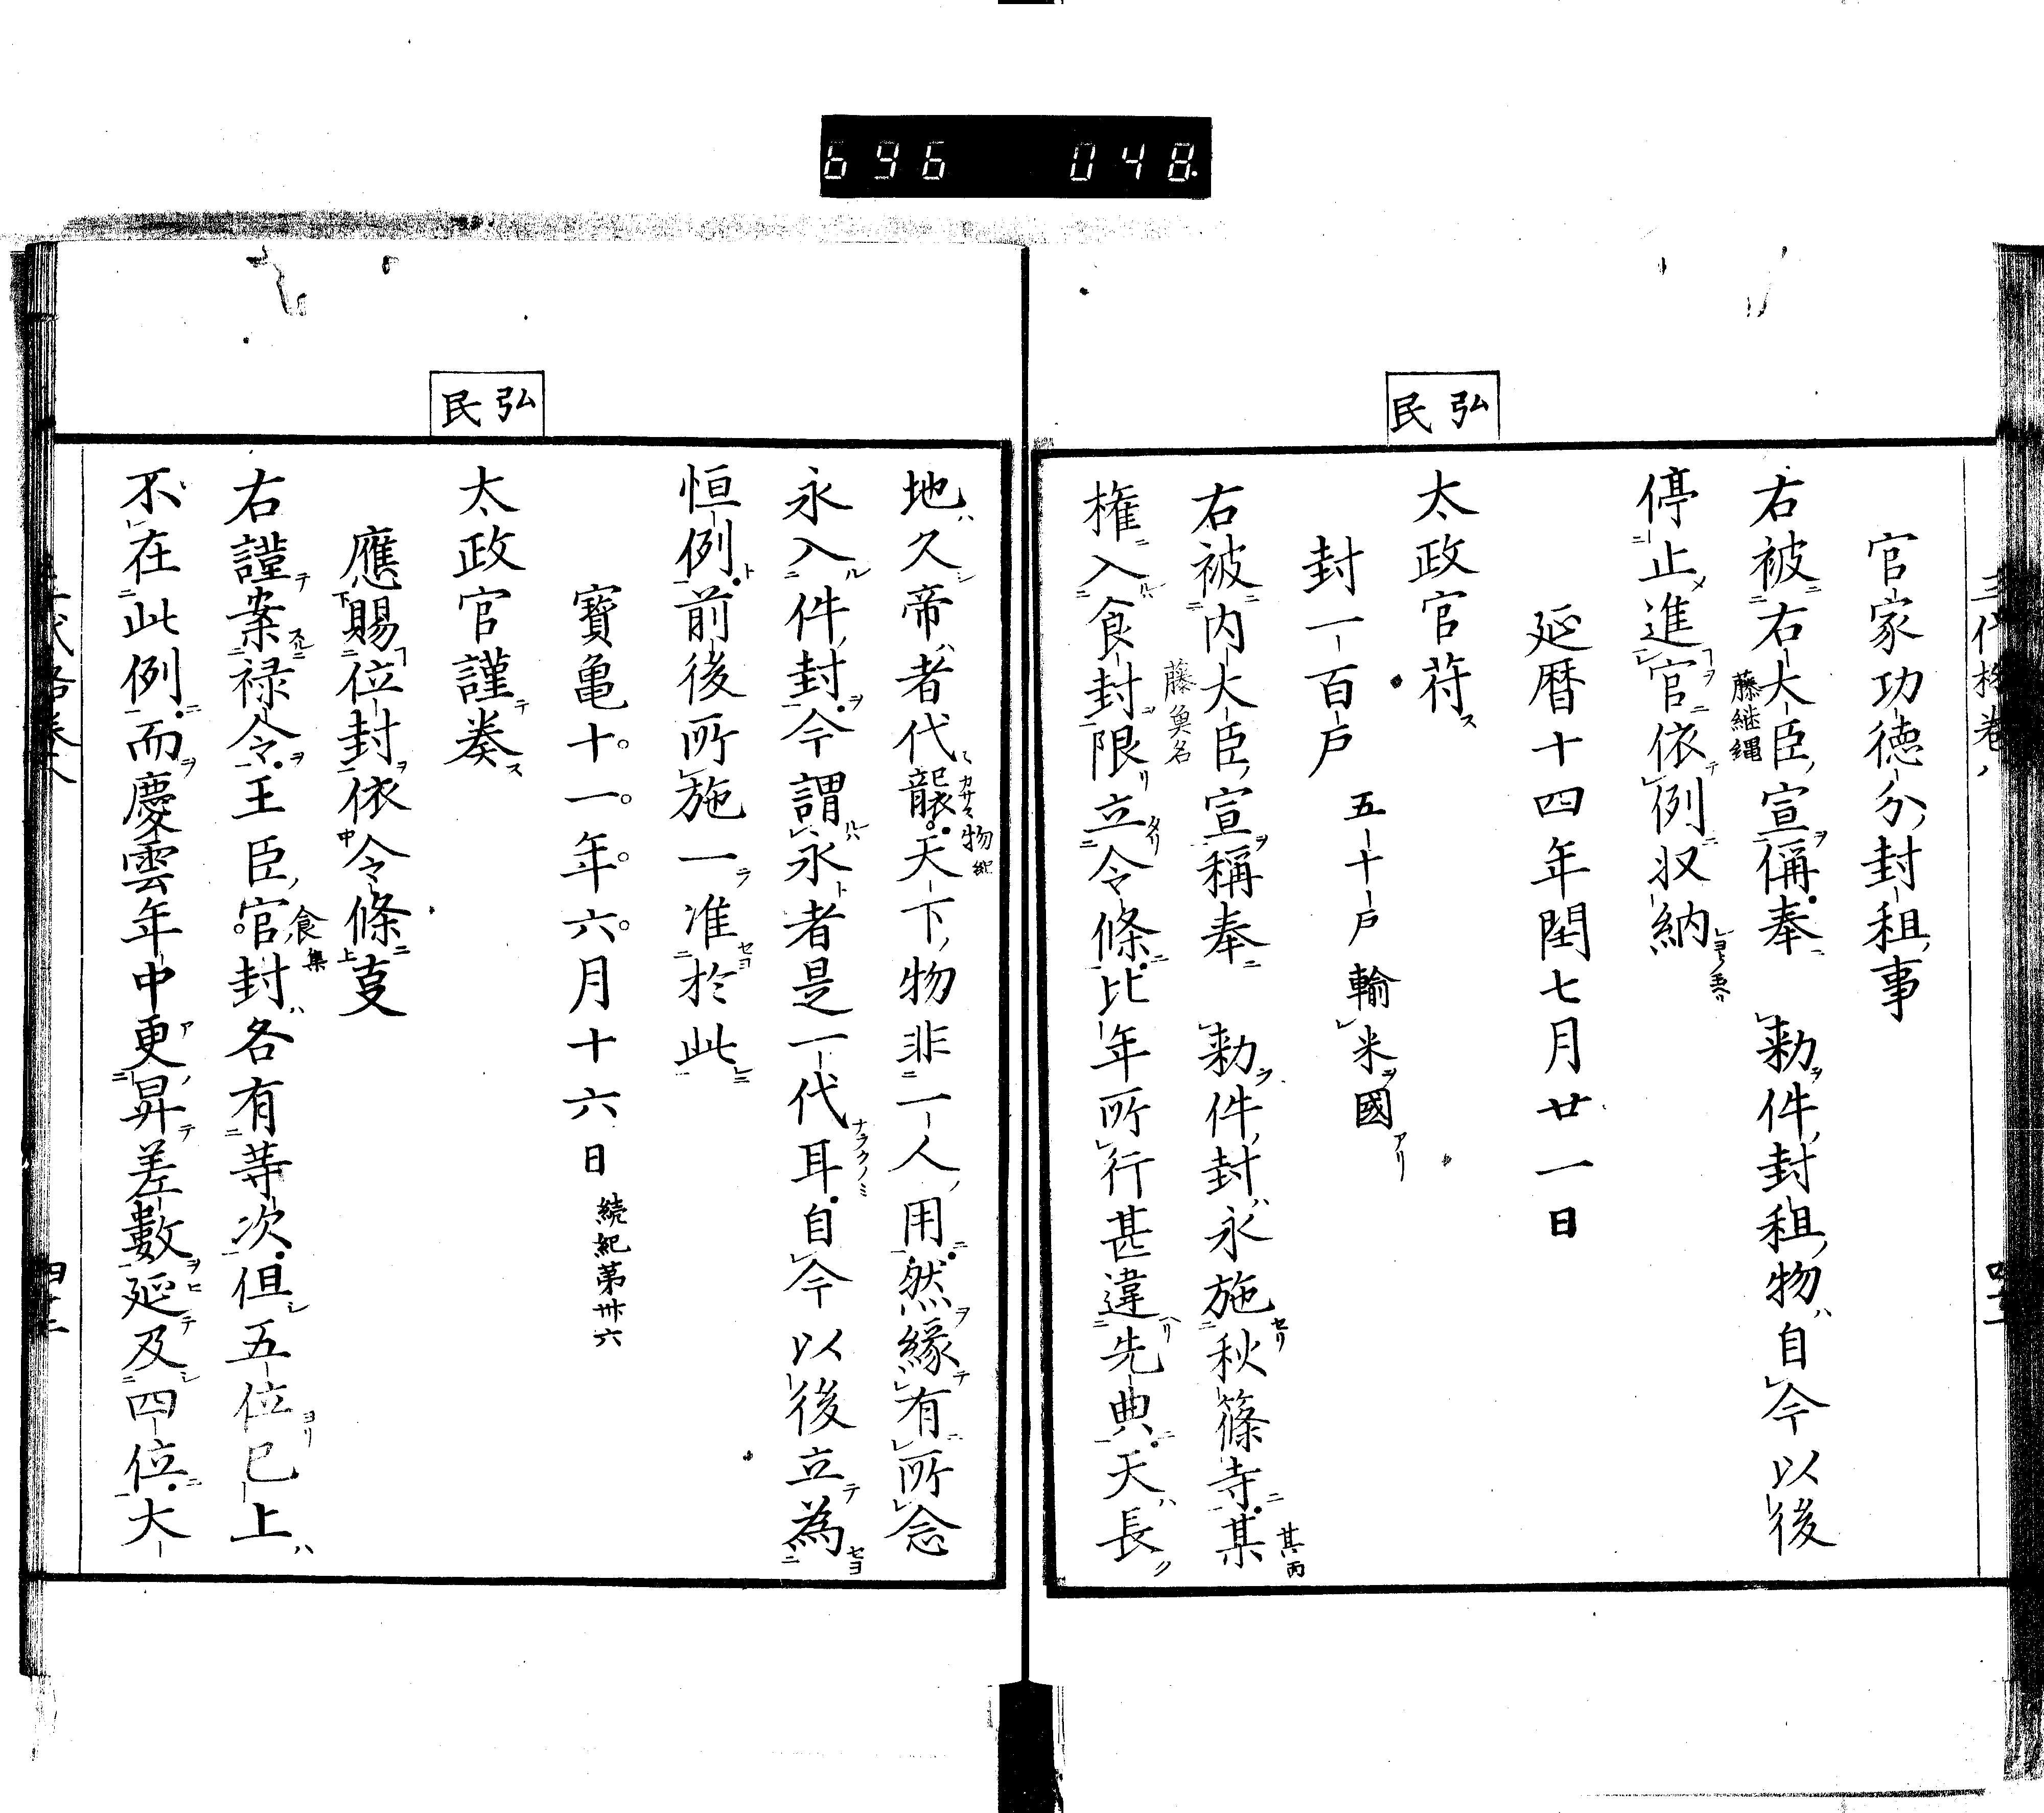 696 048
官家功徳分封租事
右被右大臣宣偁奉 勅件封租物自今以後
藤継縄
停止進官依例収納
延暦十四年閏七月廿一日
弘民
太政官苻
封一百戸 五十戸 輸米國
右被内大臣宣稱奉 勅件封永施秋篠寺某
藤魚名
権入食封限立令條比年所行甚違先典天長
地久帝者代襲天下物非一人用然緣有所念
永入件封今謂永者是一代耳自今以後立為
恒例前後所施一准於此
寳亀十一年六月十六日 続紀第卅六
弘民
太政官謹奏
應賜位封依令條㕝
右謹案禄令王臣官封各有等次但五位已上
食集
不在此例而慶雲年中更昇差數延及四位大